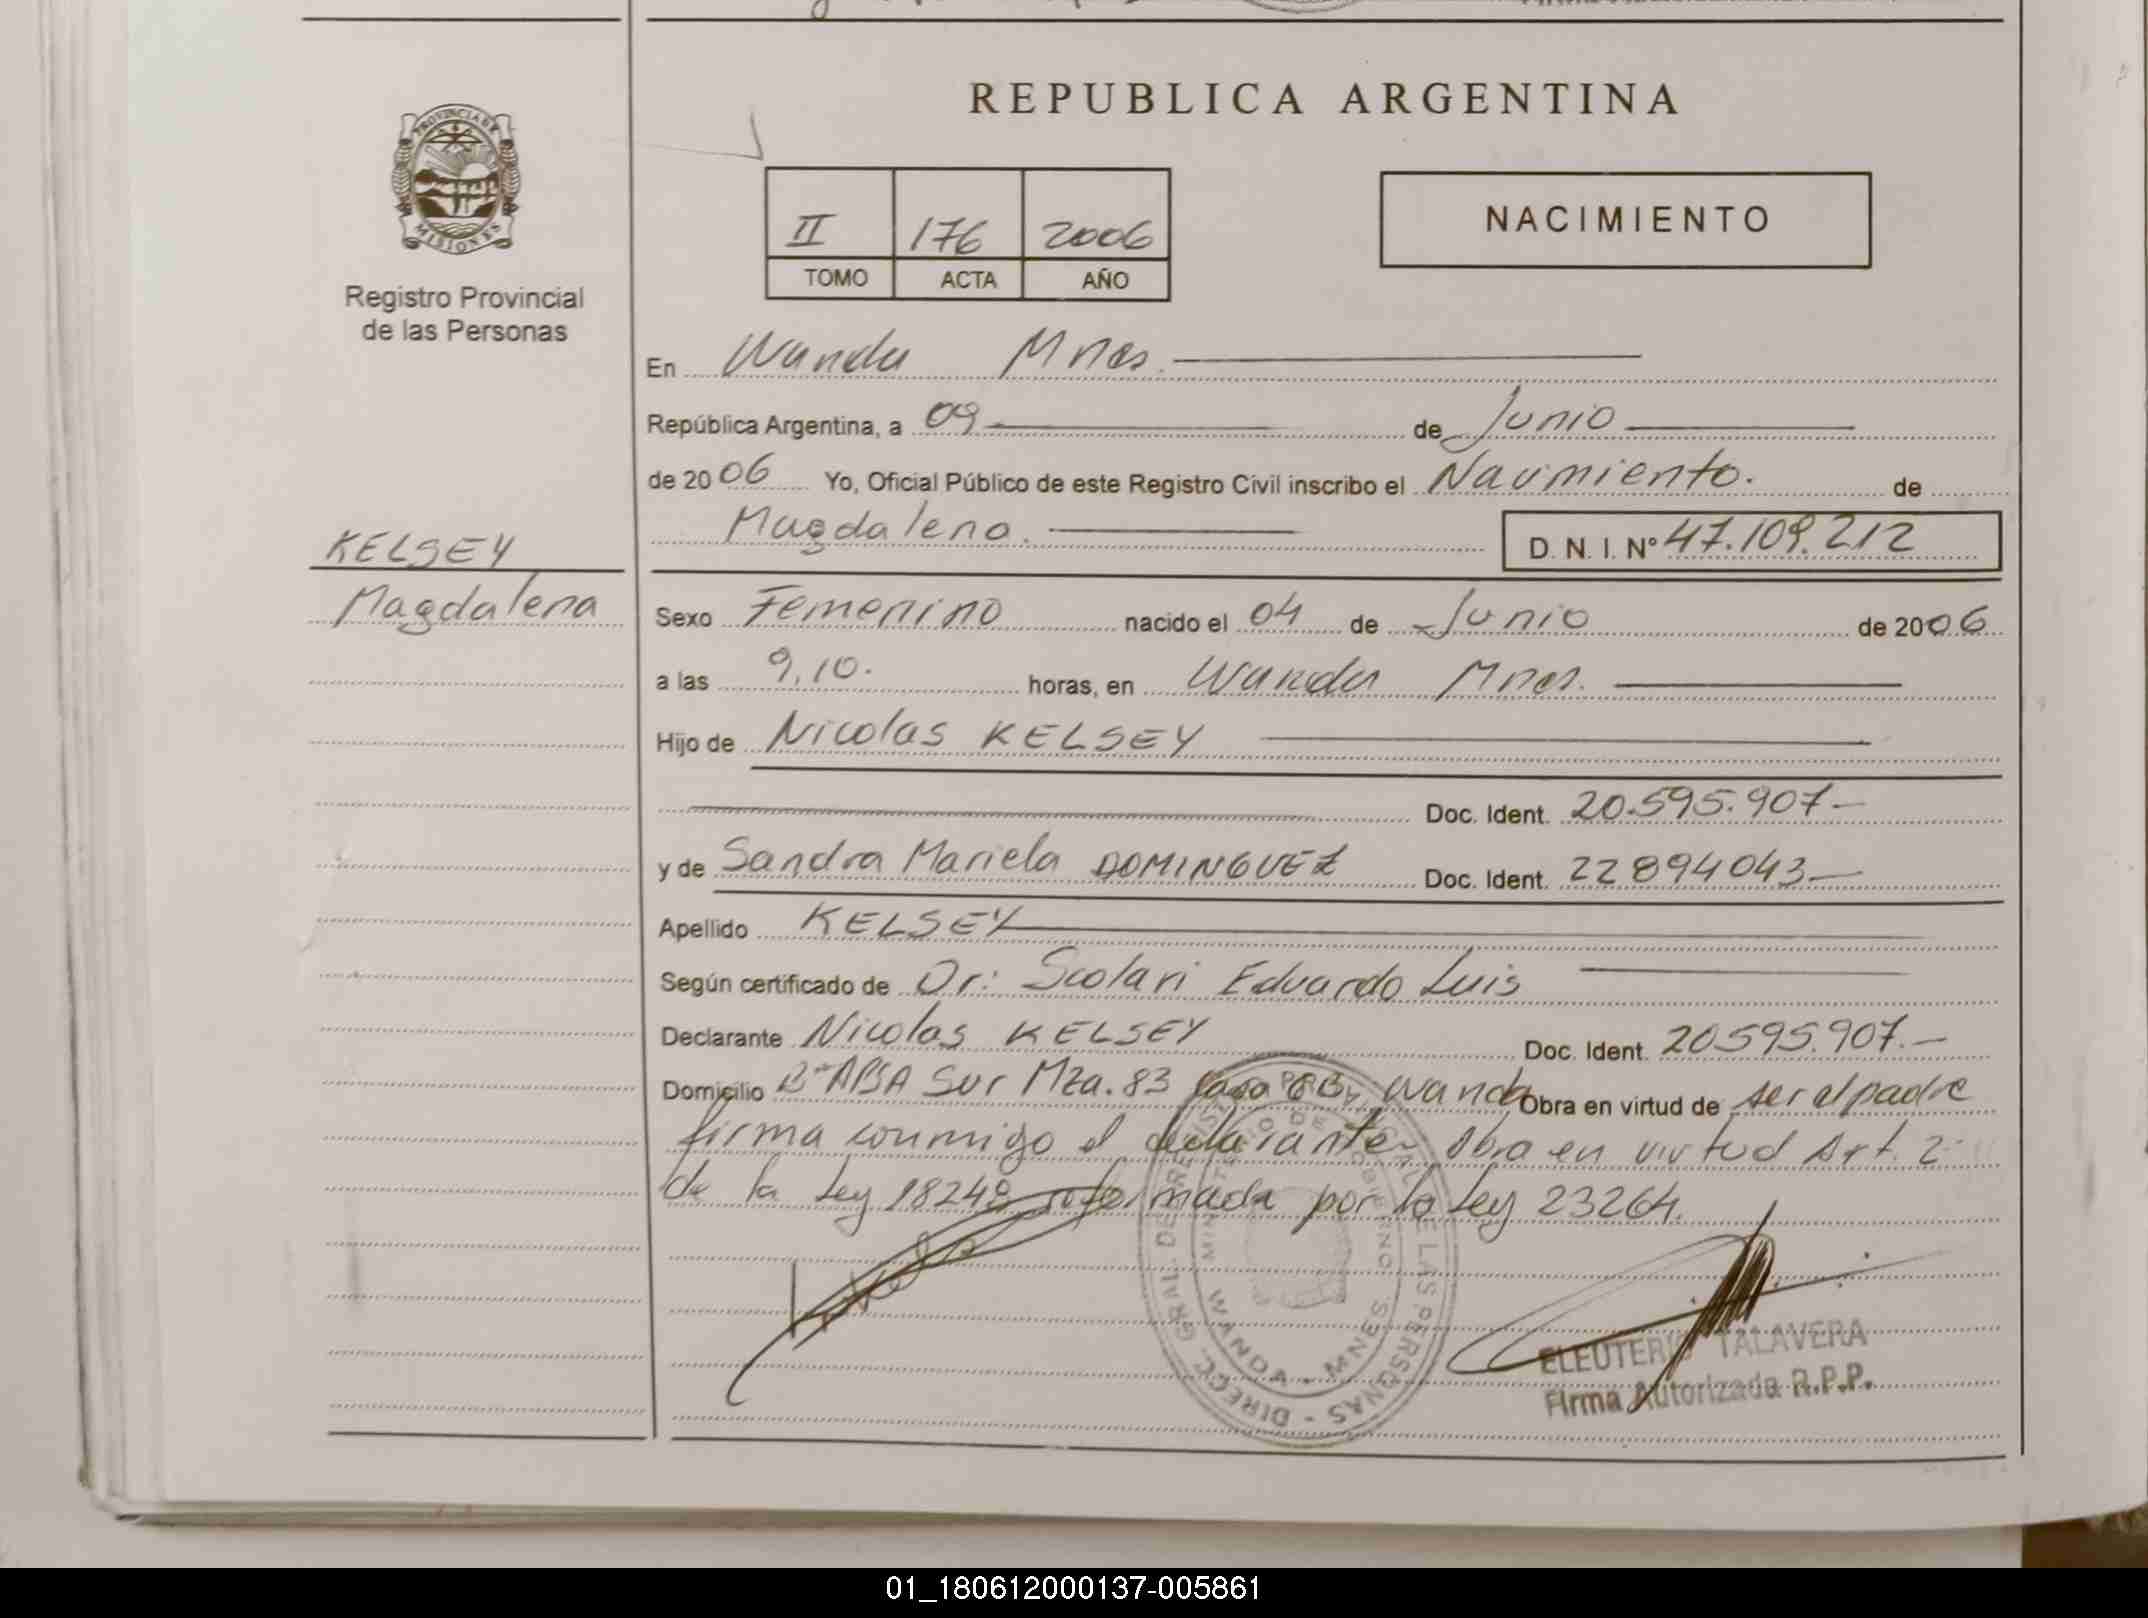 REPUBLICA ARGENTINA
PROVINCIA DE MISIONES
Registro Provincial
de las Personas
II 176 2006
TOMO ACTA AÑO
NACIMIENTO
En Wanda Mnes.
República Argentina, a 09 de Junio
de 2006 Yo, Oficial Público de este Registro Civil inscribo el Nacimiento. de
Magdalena. D. N. I. N° 47.109.212
KELSEY
Magdalena
Sexo Femenino nacido el 04 de Junio de 2006
a las 9,10. horas, en Wanda Mnes.
Hijo de Nicolas KELSEY
Doc. Ident. 20.595.907-
y de Sandra Mariela DOMINGUEZ Doc. Ident. 22894043-
Apellido KELSEY
Según certificado de Dr: Scolari Eduardo Luis
Declarante Nicolas KELSEY Doc. Ident. 20595.907.-
Domicilio B° ABSA Sur Mza. 83 Casa Wanda Obra en virtud de ser el padre
firma conmigo el declarante, Obra en virtud Art. 2
de la Ley 18248 reformada por la Ley 23264.
DIRECC. GRAL. DE REGISTRO PROVINCIAL DE LAS PERSONAS
MINISTERIO DE GOBIERNO
WANDA - MNES.
ELEUTERIO TALAVERA
Firma Autorizada R.P.P.
01_180612000137-005861